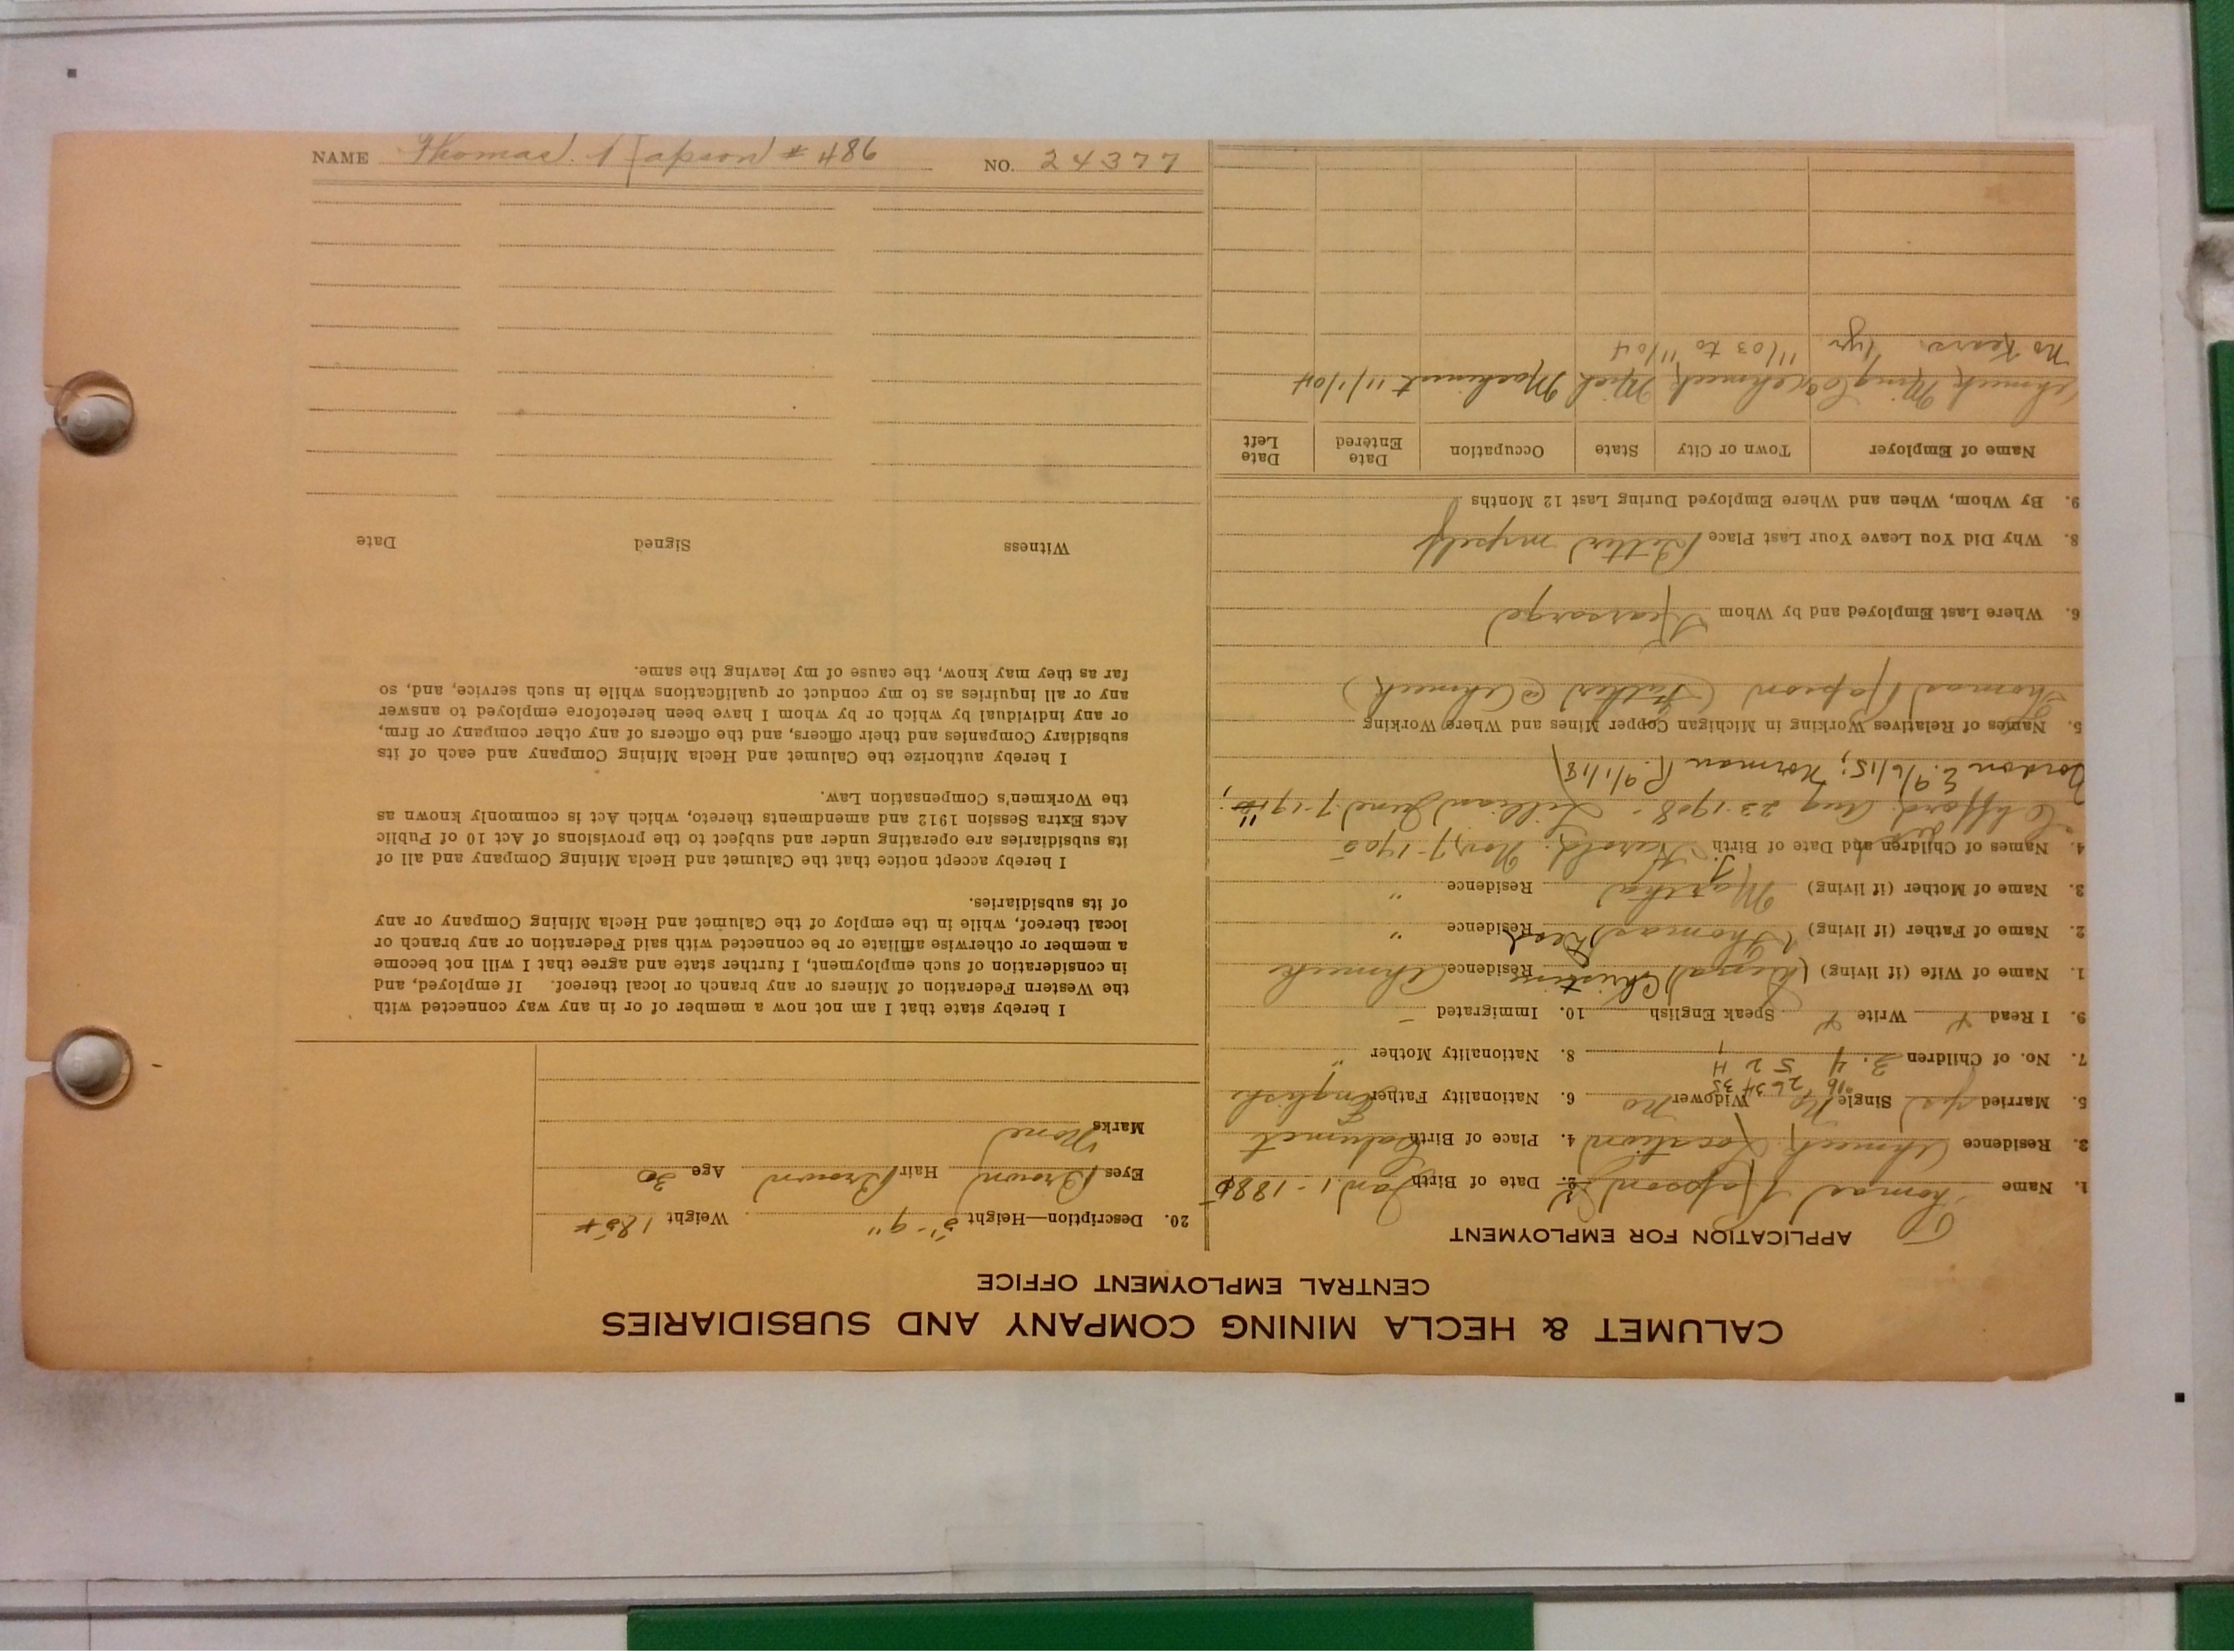 CALUMET & HECLA MINING COMPANY AND SUBSIDIARIES
CENTRAL EMPLOYMENT OFFICE
APPLICATION FOR EMPLOYMENT
1. Name Thomas Rapson 2. Date of Birth Jan. 1 - 188
3. Residence Ahmeek Location 4. Place of Birth Calumet
5. Married yes Single No Widower No 6. Nationality Father English
'16 26 34 35
7. No. of Children 3. 4 5 2 4 8. Nationality Mother "
9. I Read Write Speak English 10. Immigrated -
1. Name of Wife (if living) Christine Residence Ahmeek
2. Name of Father (if living) Thomas Dead Residence "
3. Name of Mother (if living) Martha Residence "
4. Names of Children and Date of Birth Harold. Nov. 7-1905
Clifford Aug 23-1908 - Lillian June 7-191
Gordon E. 9/6/15; Norman R. 9/1/18
5. Names of Relatives Working in Michigan Copper Mines and Where Working
Thomas Rapson (Father @ Ahmeek)
6. Where Last Employed and by Whom Kearsarge
8. Why Did You Leave Your Last Place Better myself
9. By Whom, When and Where Employed During Last 12 Months
Name of Employer Town or City State Occupation Date Entered Date Left
Ahmeek Ming Co Ahmeek Mich Machinist 11/1/04
No Kears. 1 yr 11/03 to 11/04
20. Description—Height 5'-9" Weight 185#
Eyes Brown Hair Brown Age 30
Marks None
I hereby state that I am not now a member of or in any way connected with
the Western Federation of Miners or any branch or local thereof. If employed, and
in consideration of such employment, I further state and agree that I will not become
a member or otherwise affiliate or be connected with said Federation or any branch or
local thereof, while in the employ of the Calumet and Hecla Mining Company or any
of its subsidiaries.
I hereby accept notice that the Calumet and Hecla Mining Company and all of
its subsidiaries are operating under and subject to the provisions of Act 10 of Public
Acts Extra Session 1912 and amendments thereto, which Act is commonly known as
the Workmen's Compensation Law.
I hereby authorize the Calumet and Hecla Mining Company and each of its
subsidiary Companies and their officers, and the officers of any other company or firm,
or any individual by which or by whom I have been heretofore employed to answer
any or all inquiries as to my conduct or qualifications while in such service, and, so
far as they may know, the cause of my leaving the same.
Witness Signed Date
NAME Thomas Rapson # 486 NO. 24377